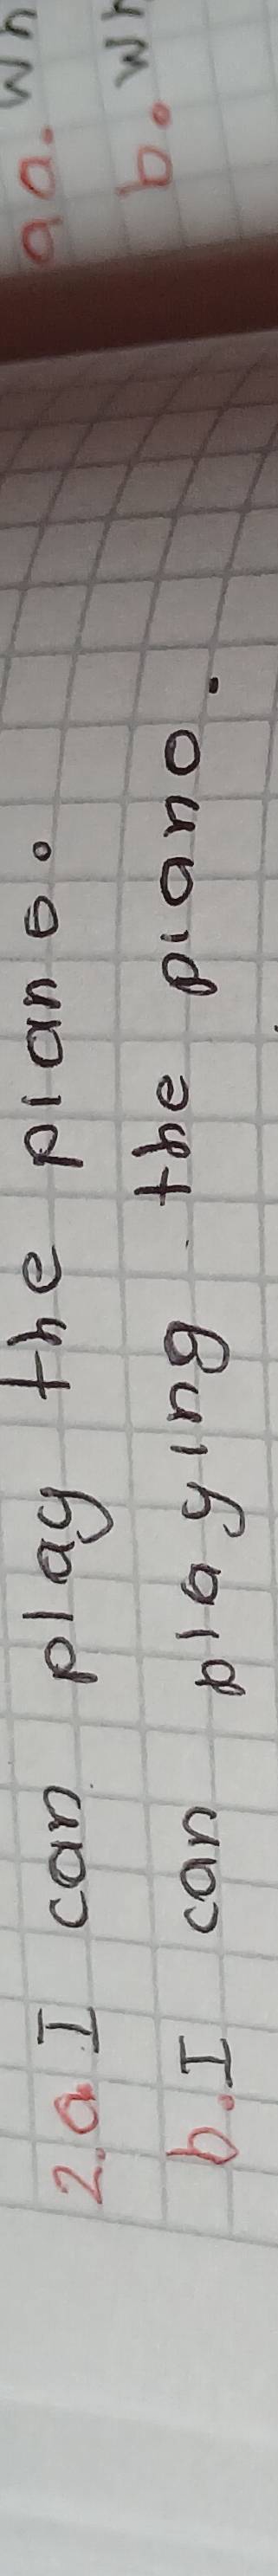 2. a. I can play the piano.
b. I can playing the piano.
9 a. wh
b. wh